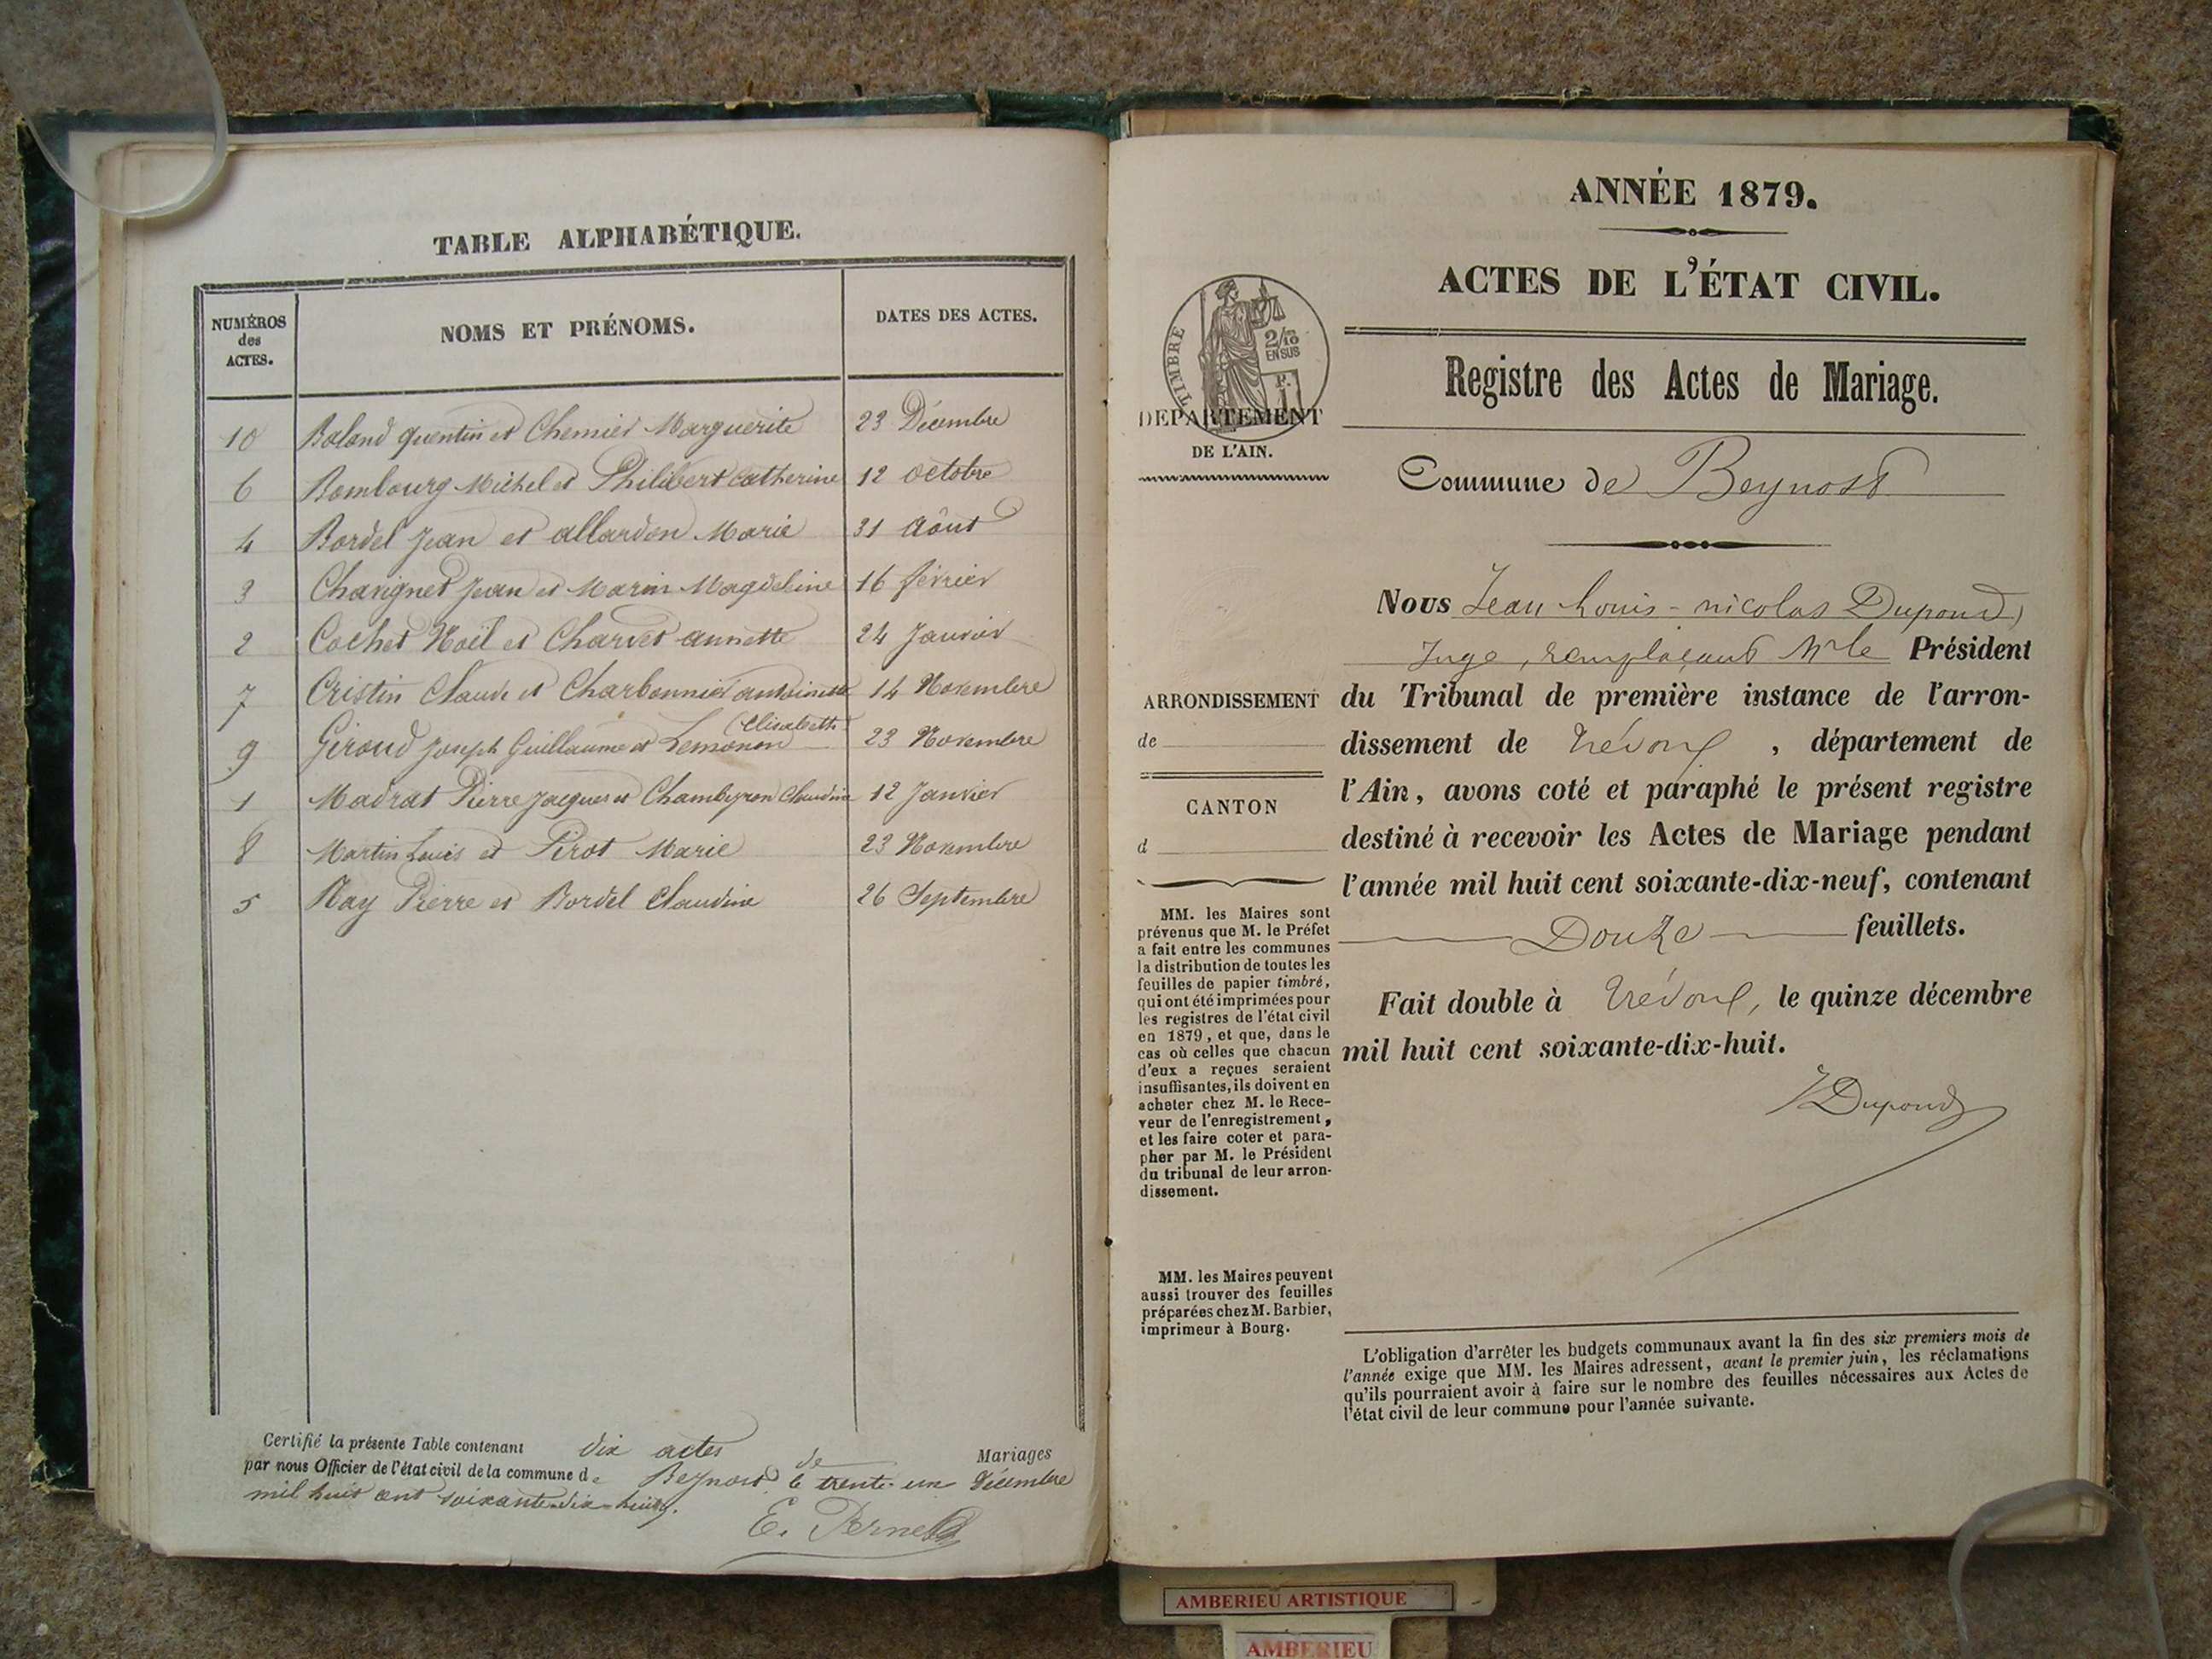 TABLE ALPHABÉTIQUE.
NUMÉROS
des
ACTES.
NOMS ET PRÉNOMS.
DATES DES ACTES.
10 Baland quentin et Chemier Marguerite 23 Décembre
6 Bombourg Michel et Philibert Catherine 12 Octobre
4 Bordel Jean et allardon Marie 31 Aôut
3 Chavignet Jean et Marin Magdeleine 16 février
2 Cochet Noël et Charvet annette 24 Janvier
7 Cristin Claude et Charbonnier antoinette 14 Novembre
Elisabeth
9 Giroud Joseph Guillaume et Lemonon 23 Novembre
1 Madrat Pierre Jacques et Chambeyron Claudine 12 Janvier
8 Martin Louis et Pirot Marie 23 Novembre
5 Ray Pierre et Bordel Claudine 26 Septembre
Certifié la présente Table contenant dix actes de Mariages
par nous Officier de l'état civil de la commune de Beynost le trente-un Décembre
mil huit cent soixante-dix-huit.
E. Pernet
ANNÉE 1879.
ACTES DE L'ÉTAT CIVIL.
TIMBRE
2/10
EN SUS
DÉPARTEMENT
DE L'AIN.
Registre des Actes de Mariage.
Commune de Beynost
Nous Jean Louis-nicolas Dupond,
Juge, remplaçant Mr le Président
du Tribunal de première instance de l'arron-
dissement de trévoux, département de
l'Ain, avons coté et paraphé le présent registre
destiné à recevoir les Actes de Mariage pendant
l'année mil huit cent soixante-dix-neuf, contenant
Douze feuillets.
Fait double à trévoux, le quinze décembre
mil huit cent soixante-dix-huit.
Dupond
ARRONDISSEMENT
de
CANTON
d
MM. les Maires sont
prévenus que M. le Préfet
a fait entre les communes
la distribution de toutes les
feuilles de papier timbré,
qui ont été imprimées pour
les registres de l'état civil
en 1879, et que, dans le
cas où celles que chacun
d'eux a reçues seraient
insuffisantes, ils doivent en
acheter chez M. le Rece-
veur de l'enregistrement,
et les faire coter et para-
pher par M. le Président
du tribunal de leur arron-
dissement.
MM. les Maires peuvent
aussi trouver des feuilles
préparées chez M. Barbier,
imprimeur à Bourg.
L'obligation d'arrêter les budgets communaux avant la fin des six premiers mois de
l'année exige que MM. les Maires adressent, avant le premier juin, les réclamations
qu'ils pourraient avoir à faire sur le nombre des feuilles nécessaires aux Actes de
l'état civil de leur commune pour l'année suivante.
AMBERIEU ARTISTIQUE
AMBERIEU